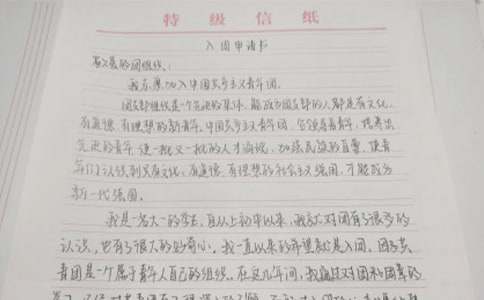 特级信纸
入团申请书
敬爱的团组织：
我志愿加入中国共产主义青年团。
团支部组织是一个先进的集体，能成为团支部的人都是有文化、
有道德、有理想的新青年。中国共产主义青年团，它领导着青年，培养出
先进的青年，使一批又一批的人才涌现，加强民族的力量，使青
年们认识到只有文化，有道德，有理想的社会主义强国，才能成为
新一代强国。
我是一名大一的学生，自从上初中以来，我就对团有了很多的
认识，也有了很大的好奇心，我一直以来的希望就是入团。因为共
青团是一个属于青年人自己的组织。在这几年间，我通过对团和团章的